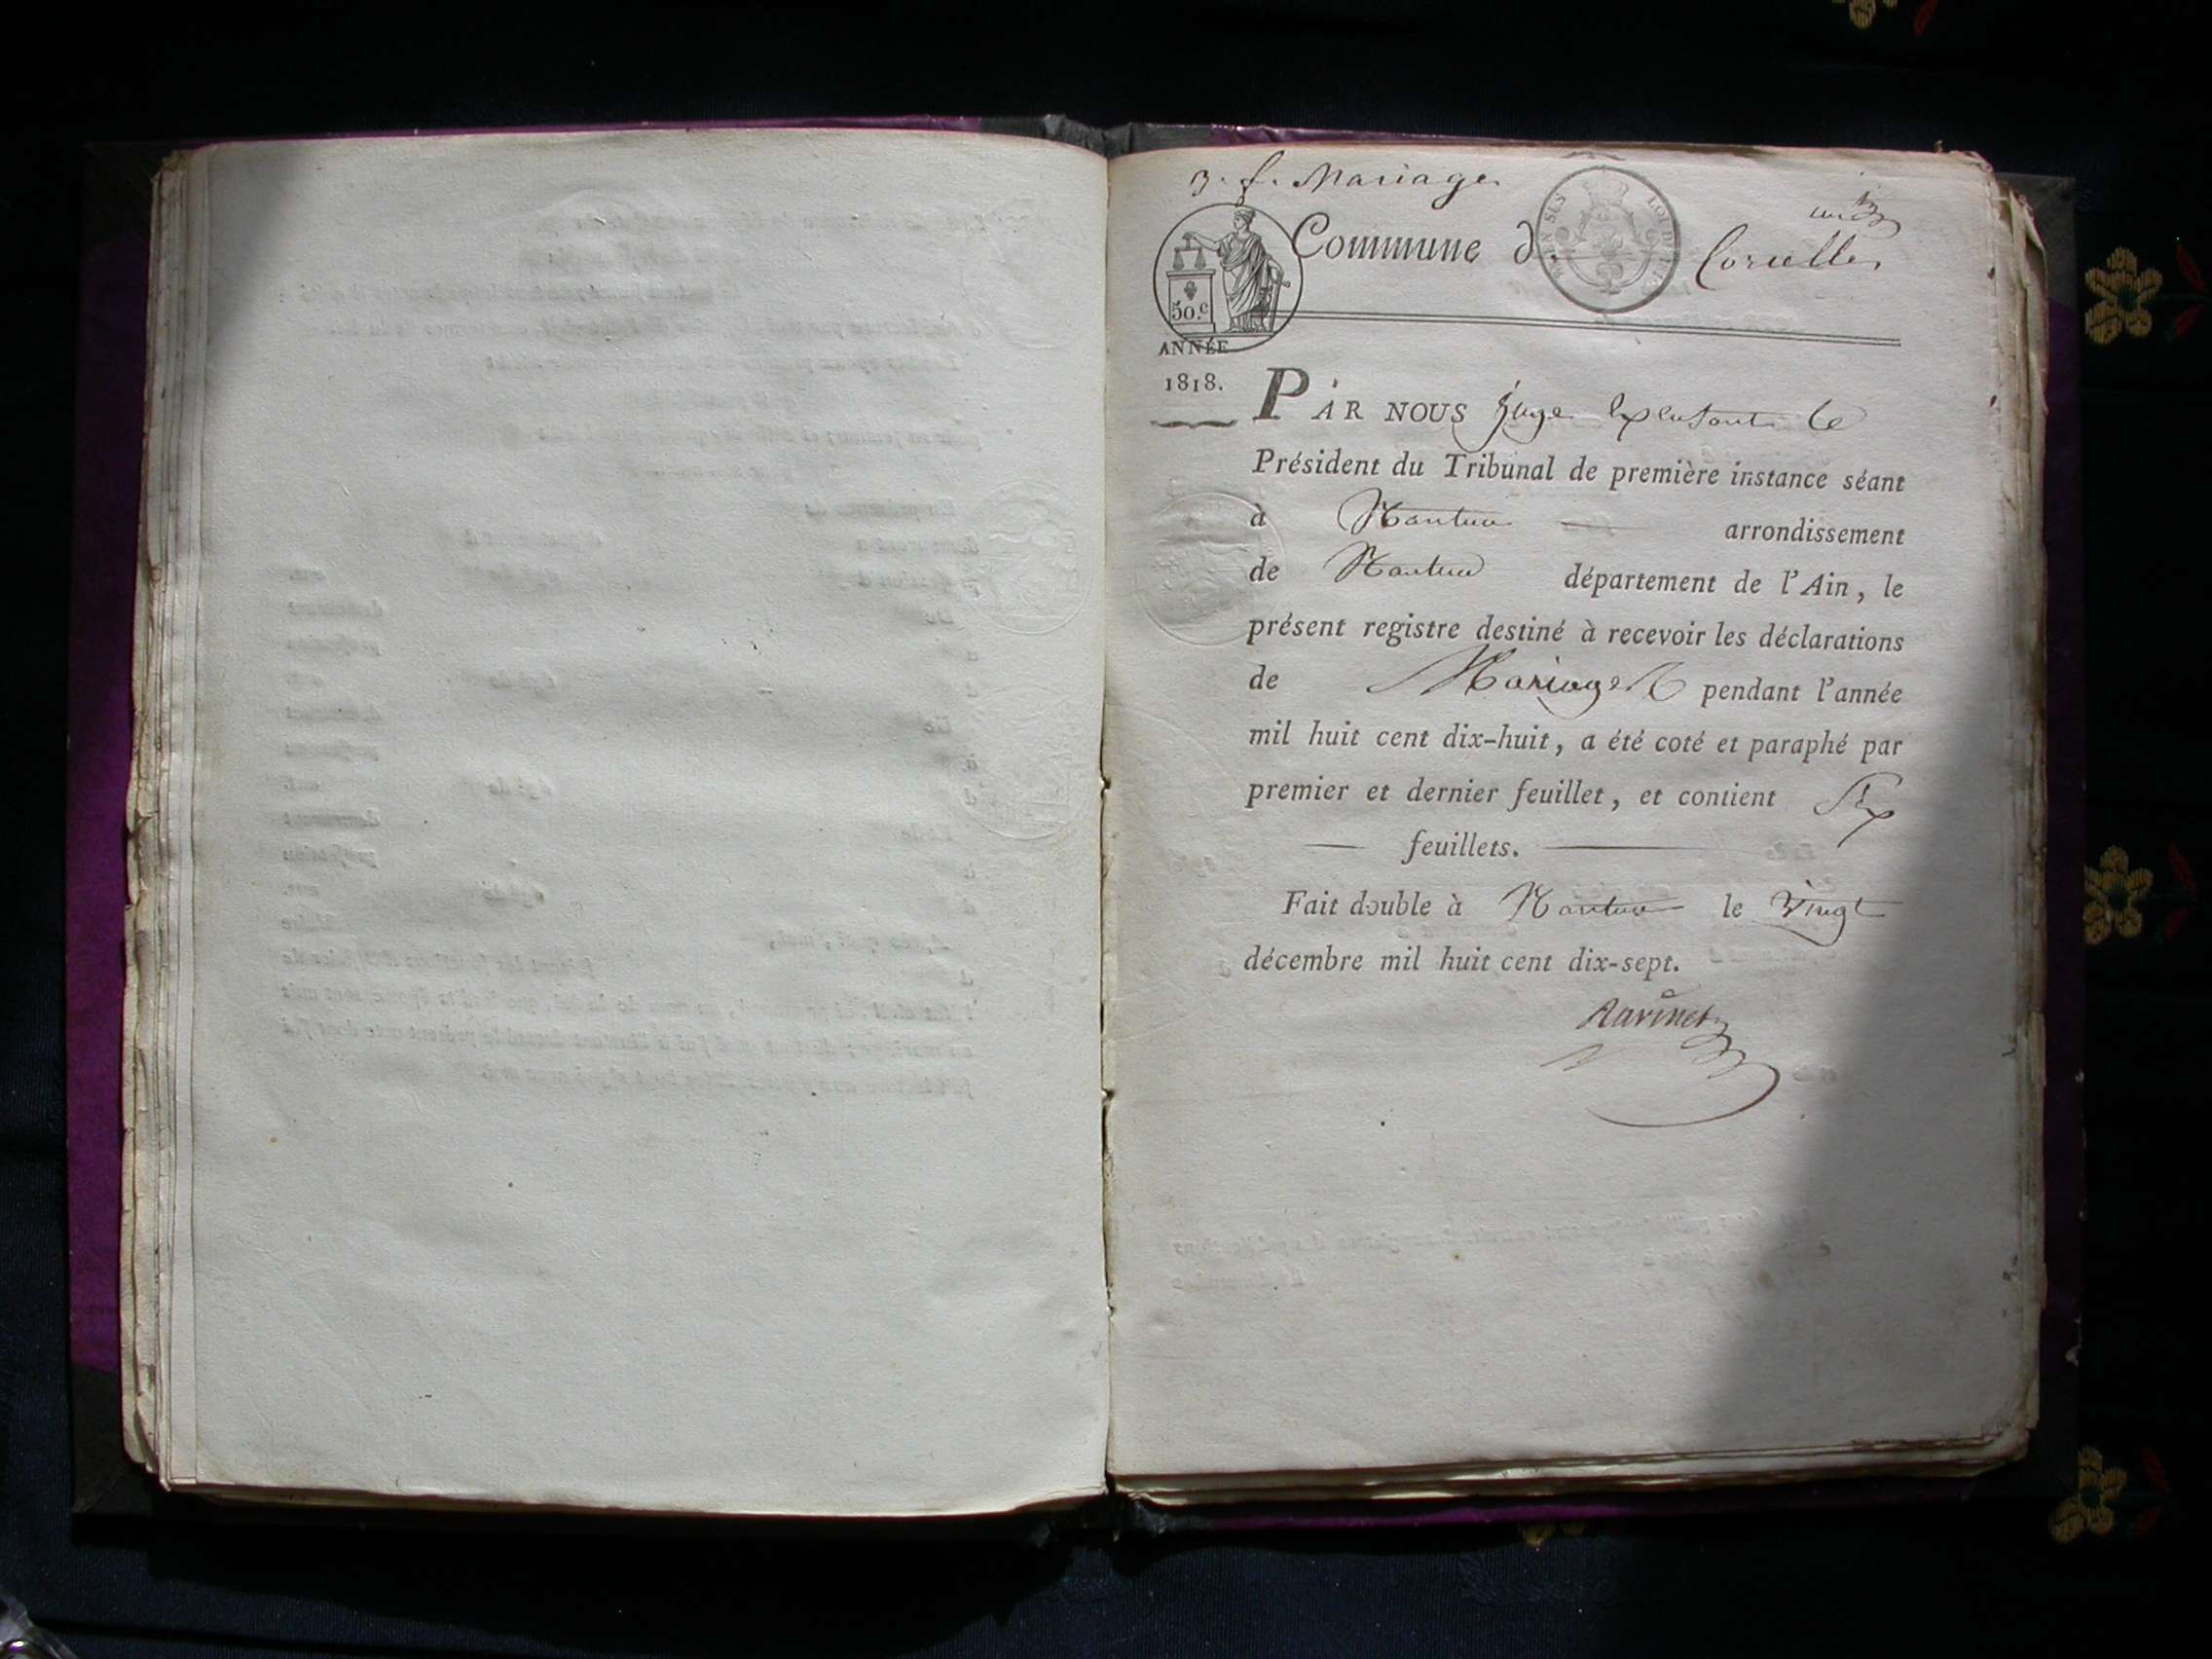 3. f. Mariage
un
Commune d Corcelles
50.c
ANNÉE
1818.
PAR NOUS Juge le
Président du Tribunal de première instance séant
à Nantua arrondissement
de Nantua département de l'Ain, le
présent registre destiné à recevoir les déclarations
de Mariages pendant l'année
mil huit cent dix-huit, a été coté et paraphé par
premier et dernier feuillet, et contient Six
feuillets.
Fait double à Nantua le vingt
décembre mil huit cent dix-sept.
Ravinet